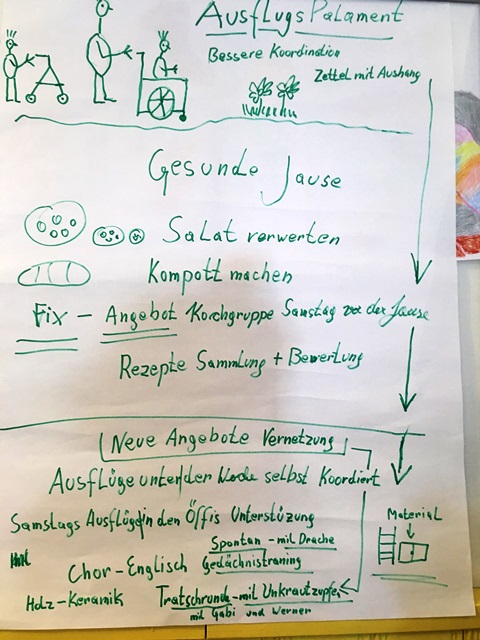 AusflugsPalament
Bessere Koordination
Zettel mit Aushang
Gesunde Jause
Salat verwerten
Kompott machen
Fix - Angebot Korchgruppe Samstag vor der Jause
Rezepte Sammlung + Bewertung
Neue Angebote Vernetzung
Ausflüge unter der Woche selbst Koordiert
Samstags Ausflüge in den Öffis Unterstüzung
Material
Spontan - mit Drache
Chor - Englisch Gedächnistraning
Holz - Keramik Tratschrunde - mit Unkrautzupfen
mit Gabi und Werner